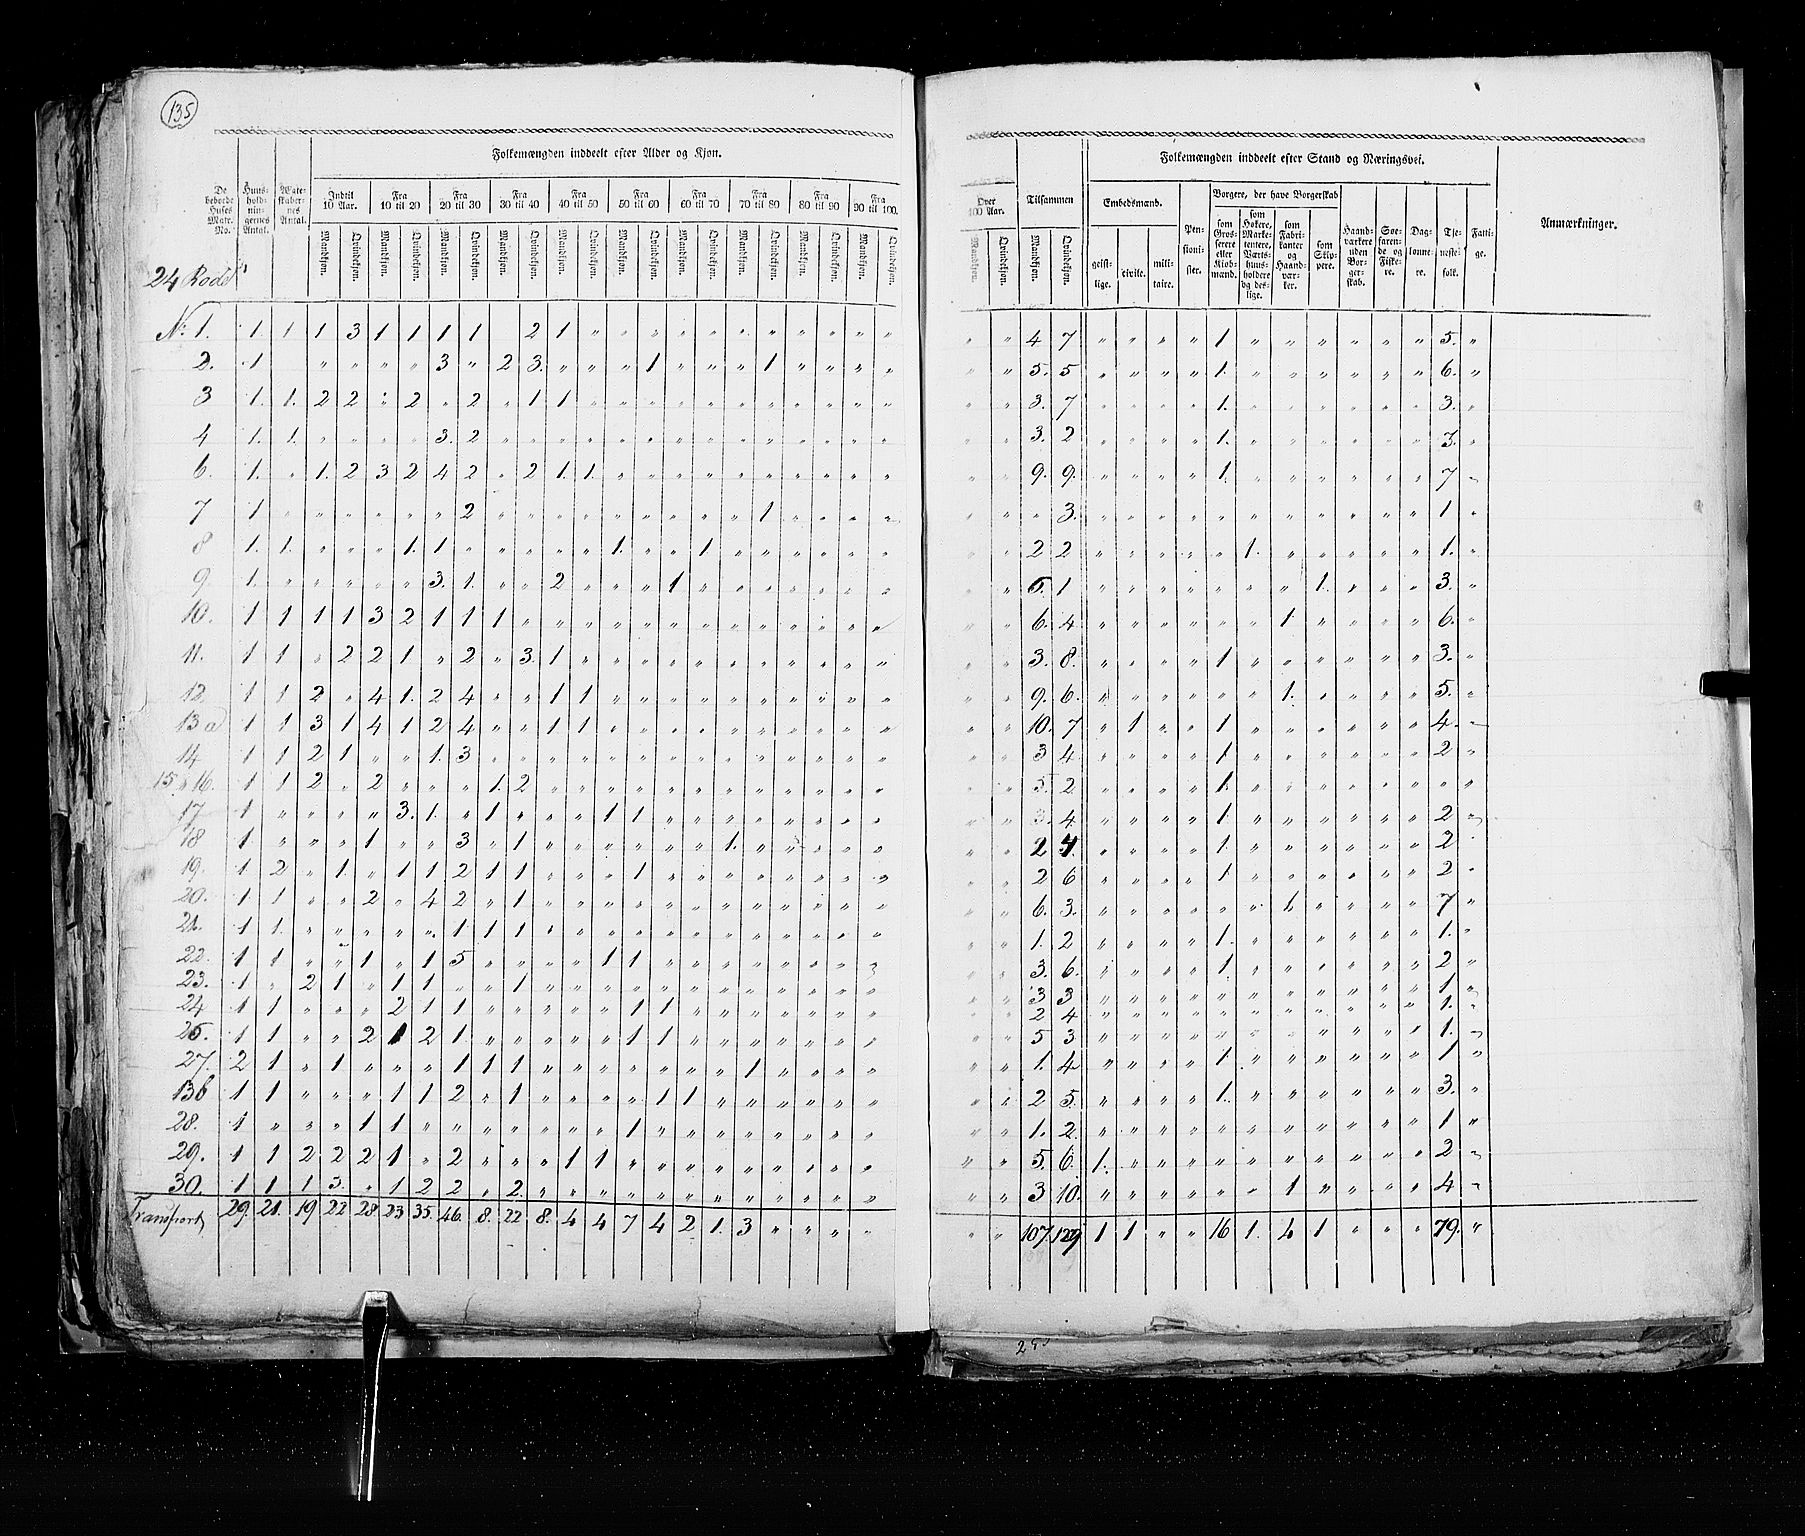 135
Folkemængden inddeelt efter Alder og Kjøn.
De beboede Huses Matr. No. | Huusholdningernes Antal. | Ægteskabernes Antal. | Indtil 10 Aar. | Fra 10 til 20 | Fra 20 til 30 | Fra 30 til 40 | Fra 40 til 50 | Fra 50 til 60 | Fra 60 til 70 | Fra 70 til 80 | Fra 80 til 90 | Fra 90 til 100.
Mandkjøn. Qvindekjøn. Mandkjøn. Qvindekjøn. Mandkjøn. Qvindekjøn. Mandkjøn. Qvindekjøn. Mandkjøn. Qvindekjøn. Mandkjøn. Qvindekjøn. Mandkjøn. Qvindekjøn. Mandkjøn. Qvindekjøn. Mandkjøn. Qvindekjøn. Mandkjøn. Qvindekjøn.
24 Rode
No 1. 1. 1 1 3 1 1 1 1 2 1 " " " " " " " " " " "
2. 1 " " " " 3 " 2 3. " " " 1 " " " 1 " " " "
3 1. 1. 2 2 " 2 " 2 " 1 1 " " " " " " " " " " "
4 1. 1. " " " " 3. 2 " " " " " " " " " " " " " "
6. 1. " 1. 2 3 2 4 2 " 2 1. 1. " " " " " " " " " "
7 1 " " " " " " 2 " " " " " " " " " 1 " " " "
8 1. 1. " " " 1. 1 " " " " " 1. " " 1 " " " " " "
9. 1. " " " " " 3. 1. " " 2 " " " 1 " " " " " " "
10. 1 1 1 1 3 2 1 1 1 " " " " " " " " " " " " "
11. 1 1 " 2 2 1 " 2 " 3. 1 " " " " " " " " " " "
12. 1 1 2 " 4 1. 2 4 " " 1 1 " " " " " " " " " "
13 a 1 1 3 1 4 1 2 4 " " 1 1 " " " " " " " " " "
14 1 1 2 1 " " 1. 3 " " " " " " " " " " " " " "
15 & 16. 1 1 2 " 2 " " " 1. 2 " " " " " " " " " " " "
17 1 " " " " 3. 1. " 1 " " " 1 1 " " " " " " " "
18 1. " " " 1 " " 3 " 1 " " " " " " 1. " " " " "
19. 1 2 " 1. " 1 1 2 1 1 " " " 1 " " " " " " " "
20. 1 1 " " 2 " 4 2 " 1 " " " " " " " " " " " "
21. 1 1. " " " " " 1 1 1 " " " " " " " " " " " "
22. 1 1 " " 1 " 1 5 " " " " 1 1 " " " " " " " "
23. 1 " 2 1 " 1 1 " " 1 " " " " " " " " " " " "
24 1 1 " " " 2 1 1 " " " " " 1 1 " " " " " " "
25. 1 1 " " 2 1 2 1. " " " " " 1 1 " " " " " " "
27. 2 1 " 1 " " " 1 1 1 " " " " " " " 1 " " " "
13b 1 1 " " " 1 1 2 " 1 " " " " 1 1 " " " " " "
28. 1 " " " 1 1 " " " " " " " 1 " " " " " " " "
29. 1 1 2 2 2 1 " 2 " " " 1 1 " " " " " " " " "
30. 1 1 1 3. " 1 2 2 " 2 " " " " " " " " " " " "
Transport 29. 21. 19 22 28. 23 35. 46. 8. 22 8. 4 4 7 4 2 1. 3 " " " "
Folkemængden inddeelt efter Stand og Næringsvei.
Over 100 Aar. | Tilsammen | Embedsmænd. | Pensionister. | Borgere, der have Borgerskab | Haandværkere uden Borgerskab. | Søefarende og Fiskere. | Daglønnere. | Tjenestefolk. | Fattige. | Anmærkninger.
Mandkjøn. Qvindekjøn. Mandkjøn. Qvindekjøn. geistlige. civile. militaire. som Grosserere eller Kiøbmænd. som Høkere, Marketentere, Værtshuusholdere og deslige. som Fabrikanter og Haandværker. som Skippere.
" " 4 7 " " " " 1 " " " " " " 5. "
" " 5. 5 " " " " 1. " " " " " " 6. "
" " 3. 7 " " " " 1. " " " " " " 3. "
" " 3. 2 " " " " 1. " " " " " " 3. "
" " 9. 9. " " " " 1. " " " " " " 7 "
" " " 3. " " " " " " " " " " " 1 "
" " 2 2 " " " " " 1. " " " " " 1. "
" " 5. 1 " " " " " " " 1. " " " 3. "
" " 6. 4 " " " " " " 1. " " " " 6. "
" " 3. 8. " " " " 1 " " " " " " 3. "
" " 9. 6. " " " " " " 1. " " " " 5. "
" " 10. 7 " 1 " " 1 " " " " " " 4. "
" " 3 4. " " " " 1 " " " " " " 2 "
" " 5. 2 " " " " 1. " " " " " " " "
" " 3. 4. " " " " 1. " " " " " " 2 "
" " 2 4. " " " " 1. " " " " " " 2
" " 2 6 " " " " 1. " " " " " " 2 "
" " 6. 3. " " " " " " 1. " " " " 7 "
" " 1. 2 " " " " 1. " " " " " " 1. "
" " 3. 6. " " " " 1. " " " " " " 2 "
" " 3 3 " " " " " " " " " " " 1 "
" " 2 4 " " " " " " " " " " " 1. "
" " 5 3 " " " " " " " " " " " 1. "
" " 1. 4. " " " " 1. " " " " " " 1 "
" " 2 5. " " " " 1. " " " " " " 3. "
" " 1. 2. " " " " " " " " " " " 1 "
" " 5. 6. 1. " " " " " " " " " " 2 "
" " 3 10. " " " " " " 1 " " " " 4 "
" " 107. 129 1 1 " " 16 1. 4 1 " " " 79. "